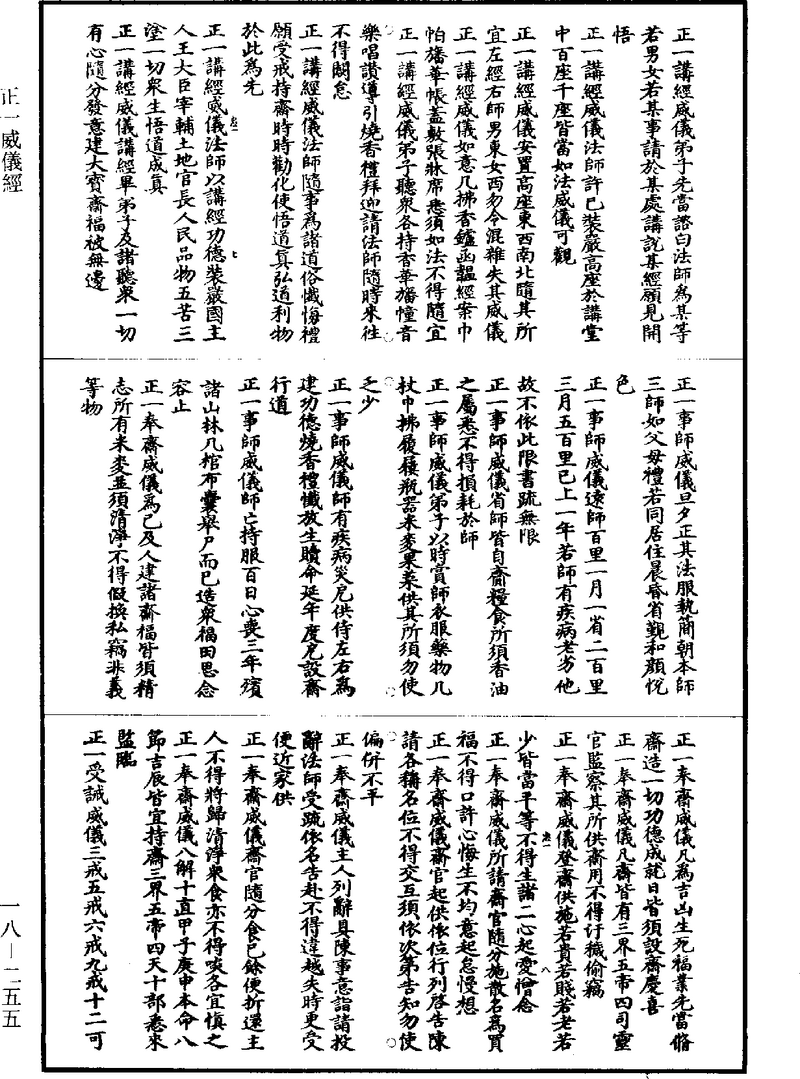 正一威儀經
一八—二五五
正一講經威儀弟子先當諮白法師為某等
若男女若某事請於某處講說某經願見開
悟
正一講經威儀法師許已裝嚴高座於講堂
中百座千座皆當如法威儀可觀
正一講經威儀安置高座東西南北隨其所
宜左經右師男東女西勿令混雜失其威儀
正一講經威儀如意几拂香鑪函韞經案巾
帕旛華帳蓋敷張牀席悉須如法不得隨宜
正一講經威儀弟子聽衆各持香華旛幢音
樂唱讚導引燒香禮拜迎請法師隨時來往
不得闕怠
正一講經威儀法師隨事為諸道俗懺悔禮
願受戒持齋時時勸化使悟道真弘道利物
於此為先
正一講經威儀法師以講經功德裝嚴國主
人王大臣宰輔土地官長人民品物五苦三
塗一切衆生悟道成真
正一講經威儀講經畢弟子及諸聽衆一切
有心隨分發意建大寶齋福被無邊
正一事師威儀旦夕正其法服執簡朝本師
三師如父母禮若同居住晨昏省覲和顏悅
色
正一事師威儀遠師百里一月一省二百里
三月五百里已上一年若師有疾病老劣他
故不依此限書疏無限
正一事師威儀省師皆自齎糧食所須香油
之屬悉不得損耗於師
正一事師威儀弟子以時賞師衣服藥物几
杖巾拂履屐瓶器米麥果菜供其所須勿使
乏少
正一事師威儀師有疾病災危供侍左右為
建功德燒香禮懺放生贖命延年度厄設齋
行道
正一事師威儀師亡持服百日心喪三年殯
諸山林几棺布囊舉尸而已造衆福田思念
容止
正一奉齋威儀為己及人建諸齋福皆須精
志所有米麥並須清淨不得假換私竊非義
等物
正一奉齋威儀凡為吉凶生死福業先當脩
齋造一切功德成就日皆須設齋慶喜
正一奉齋威儀凡齋皆有三界五帝四司靈
官監察其所供齋用不得汙穢偷竊
正一奉齋威儀登齋供施若貴若賤若老若
少皆當平等不得生諸二心起愛憎念
正一奉齋威儀所請齋官隨分施散名為買
福不得口許心悔生不均意起怠慢想
正一奉齋威儀齋官起供依位行列啓告陳
請各稱名位不得交互須依次第告知勿使
偏併不平
正一奉齋威儀主人列辭具陳事意詣請投
辭法師受疏依名告赴不得違越失時更受
便近家供
正一奉齋威儀齋官隨分食已餘便折還主
人不得將歸清淨衆食亦不得啖各宜慎之
正一奉齋威儀八解十直甲子庚申本命八
節吉辰皆宜持齋三界五帝四天十部悉來
監臨
正一受誡威儀三戒五戒六戒九戒十二可